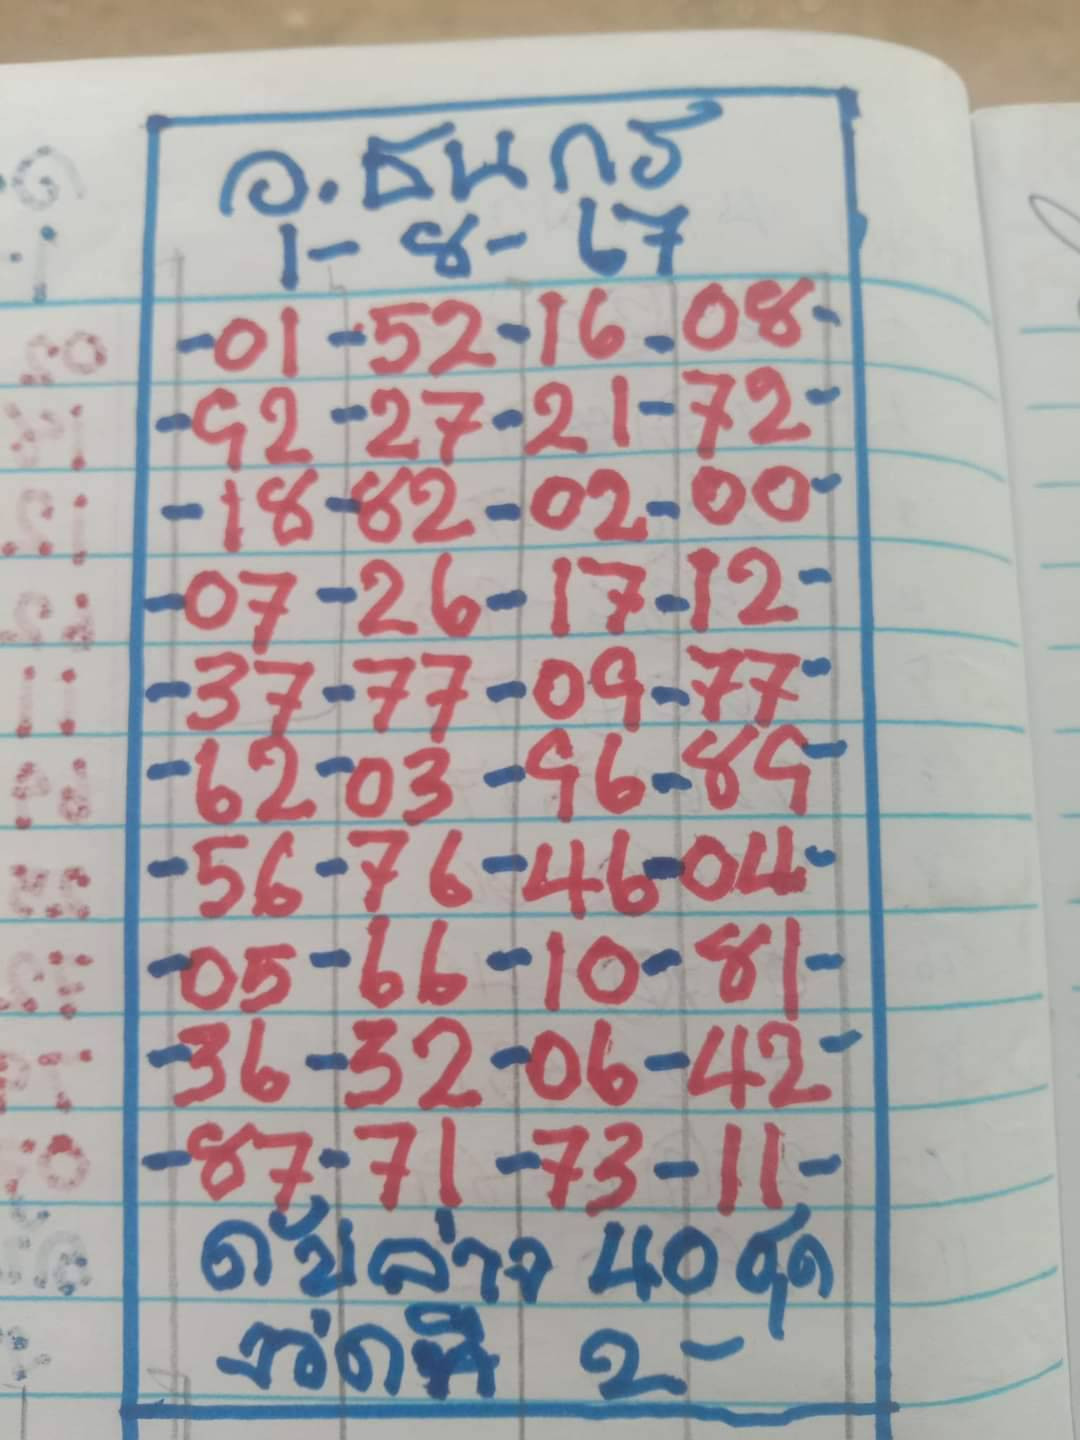 อ.ธนกร
1-8-67
-01-52-16-08-
-92-27-21-72-
-18-82-02-00-
-07-26-17-12-
-37-77-09-77-
-62-03-96-89-
-56-76-46-04-
-05-66-10-81-
-36-32-06-42-
-87-71-73-11-
ดับล่าง 40 ชุด
งวดที่ 2-